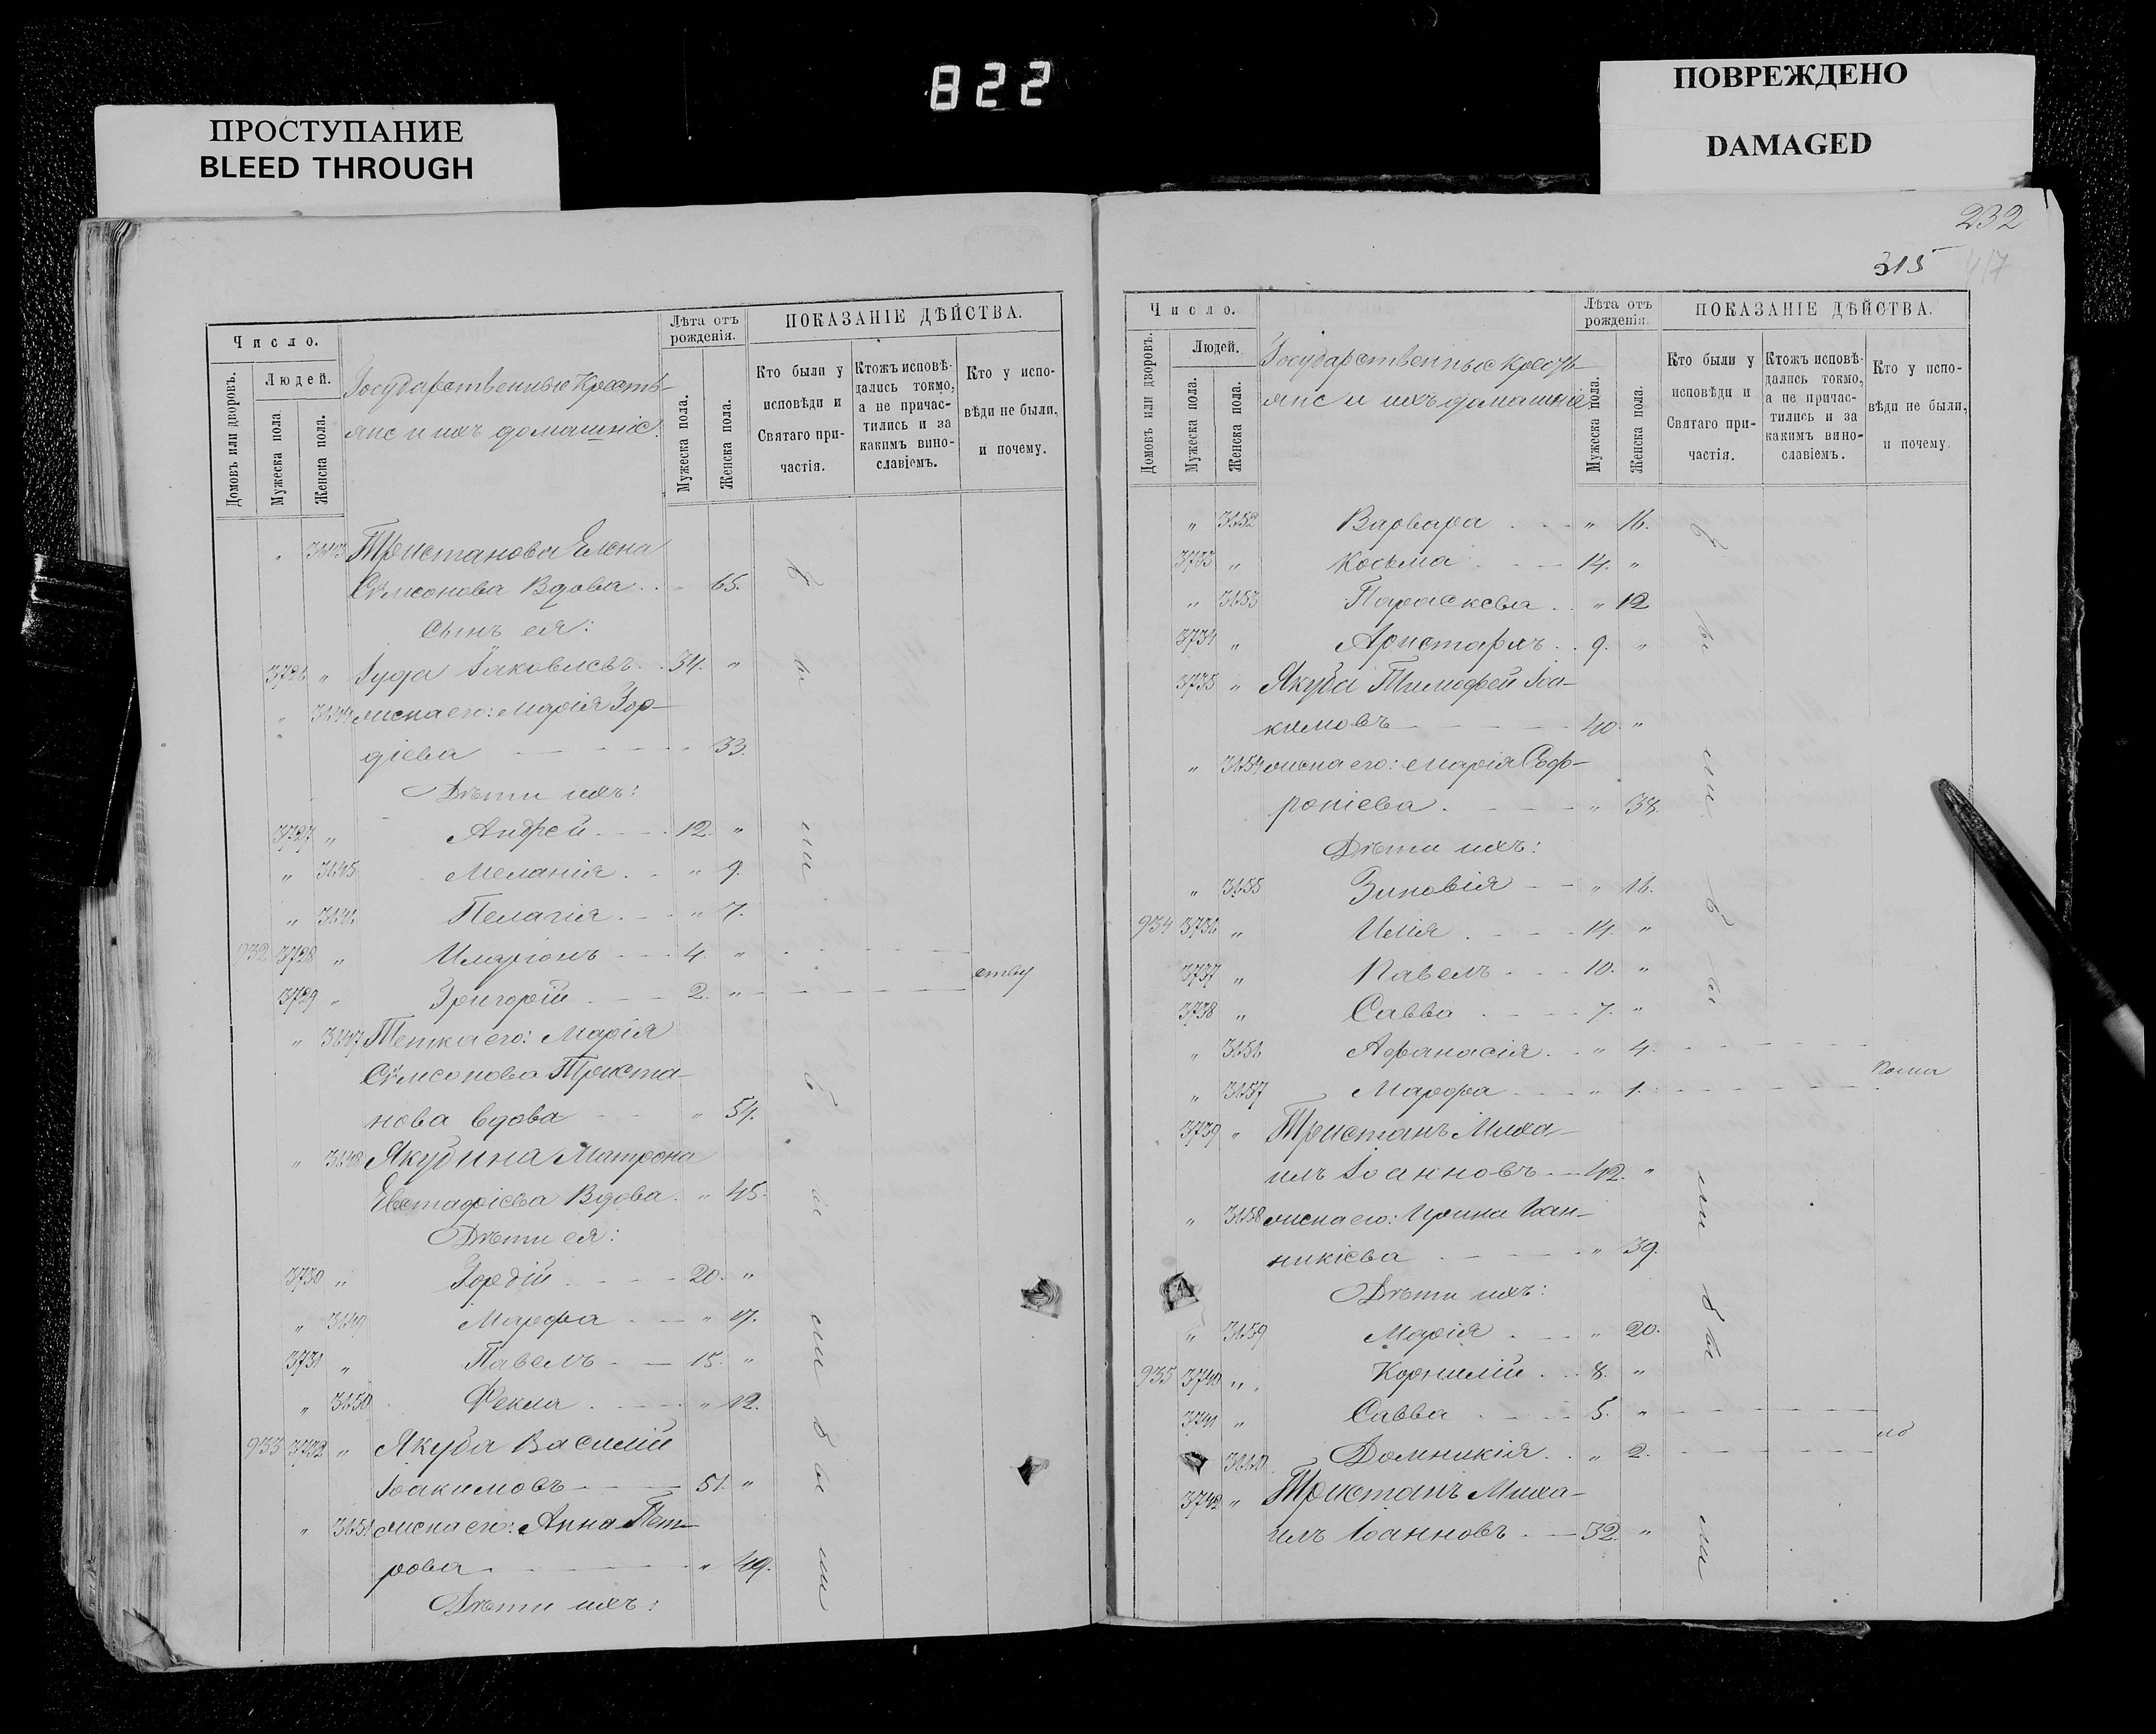 822
ПРОСТУПАНИЕ
BLEED THROUGH
ПОВРЕЖДЕНО
DAMAGED
Число.
Людей.
Домовъ или дворовъ.
Мужеска пола
Женска пола.
Государственные Кресть-
яне и ихъ домашніе.
Лѣта отъ рожденія.
Мужеска пола.
Женска пола.
ПОКАЗАНІЕ ДѢЙСТВА.
Кто были у исповѣди и Святаго причастія.
Ктожъ исповѣдались токмо, а не причастились и за какимъ винославіемъ.
Кто у исповѣди не были, и почему.
" 3643 Тристанова Елена
Сѵмеонова Вдова . . " 65.
Сынъ ея:
3726 " Іуда Іаковлевъ . . 34. "
" 3644 жена его: Марія Гор-
діева " 33.
Дѣти ихъ:
3727 " Андрей . 12. "
" 3645 Меланія . " 9.
" 3646 Пелагія . " 7.
932 3728 " Иларіонъ 4. "
3729 " Григорій 2. "
" 3647 Тетка его: Марія
Сѵмеонова Триста-
нова вдова " 54.
" 3648 Якубина Матрона
Евстафіева Вдова . " 45.
Дѣти ея:
3730 " Гордій . 20. "
" 3649 Марфа " 17.
3731 " Павелъ 15. "
" 3650 Фекла . " 12.
933 3732 " Якуба Василій
Іоакимовъ 51. "
" 3651 жена его: Анна Пет-
рова " 49.
Дѣти ихъ:
232
315
417
Число.
Людей.
Домовъ или дворовъ.
Мужеска пола.
Женска пола.
Государственные Кресть-
яне и ихъ домашніе
Лѣта отъ рожденія.
Мужеска пола.
Женска пола.
ПОКАЗАНІЕ ДѢЙСТВА.
Кто были у исповѣди и Святаго причастія.
Ктожъ исповѣдались токмо, а не причастились и за какимъ винославіемъ.
Кто у исповѣди не были, и почему.
" 3652 Варвара . " 16.
3733 " Косьма . 14. "
" 3653 Параскева . . " 12
3734 " Аристархъ . . 9. "
3735 " Якуба Тимофей Іоа-
кимовъ 40. "
" 3654 жена его: Марія Соф-
роніева . " 38.
Дѣти ихъ:
" 3655 Зиновія " 16.
934 3736 " Илія . 14. "
3737 " Павелъ 10. "
3738 " Савва . 7. "
" 3656 Афанасія . . " 4.
" 3657 Марфа " 1.
3739 " Тристанъ Миха-
илъ Іоанновъ 42. "
" 3658 жена его: Ирина Іоан-
никіева " 39.
Дѣти ихъ:
" 3659 Марія . " 20.
935 3740 " Корнилій . . 8. "
3741 " Савва . 5. "
3660 Домникія . . " 2.
3742 " Тристанъ Миха-
илъ Іоанновъ . 32. "